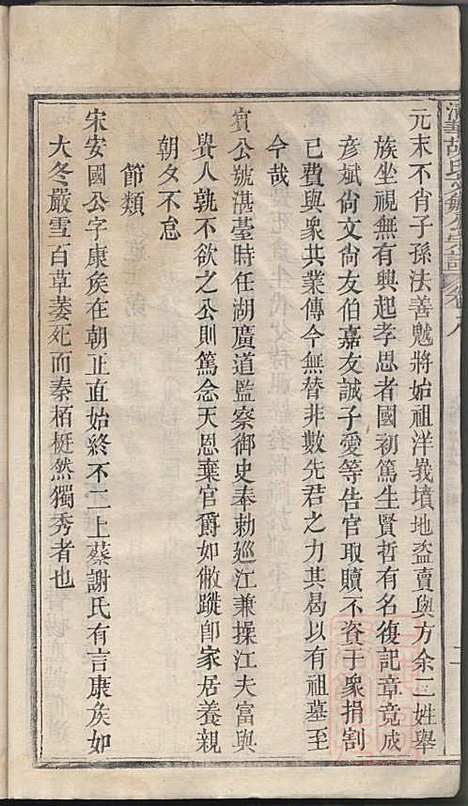 清華胡氏統會宗譜 卷之八
元末不肖子孫法善魁將始祖洋峩墳地盜賣與方余三姓舉
族坐視無有興起孝思者國初篤生賢哲有名復記章竟成
彥斌尙文尙友伯嘉友誠子愛等告官取贖不資于衆捐割
已費與衆共業傳今無替非數先君之力其曷以有祖墓至
今哉
寅公號湛臺時任湖廣道監察御史奉勅廵江兼操江夫富與
貴人孰不欲之公則篤念天恩棄官爵如敝蹝卽家居養親
朝夕不怠
節類
宋安國公字康矦在朝正直始終不二上蔡謝氏有言康矦如
大冬嚴雪百草萎死而秦栢梃然獨秀者也